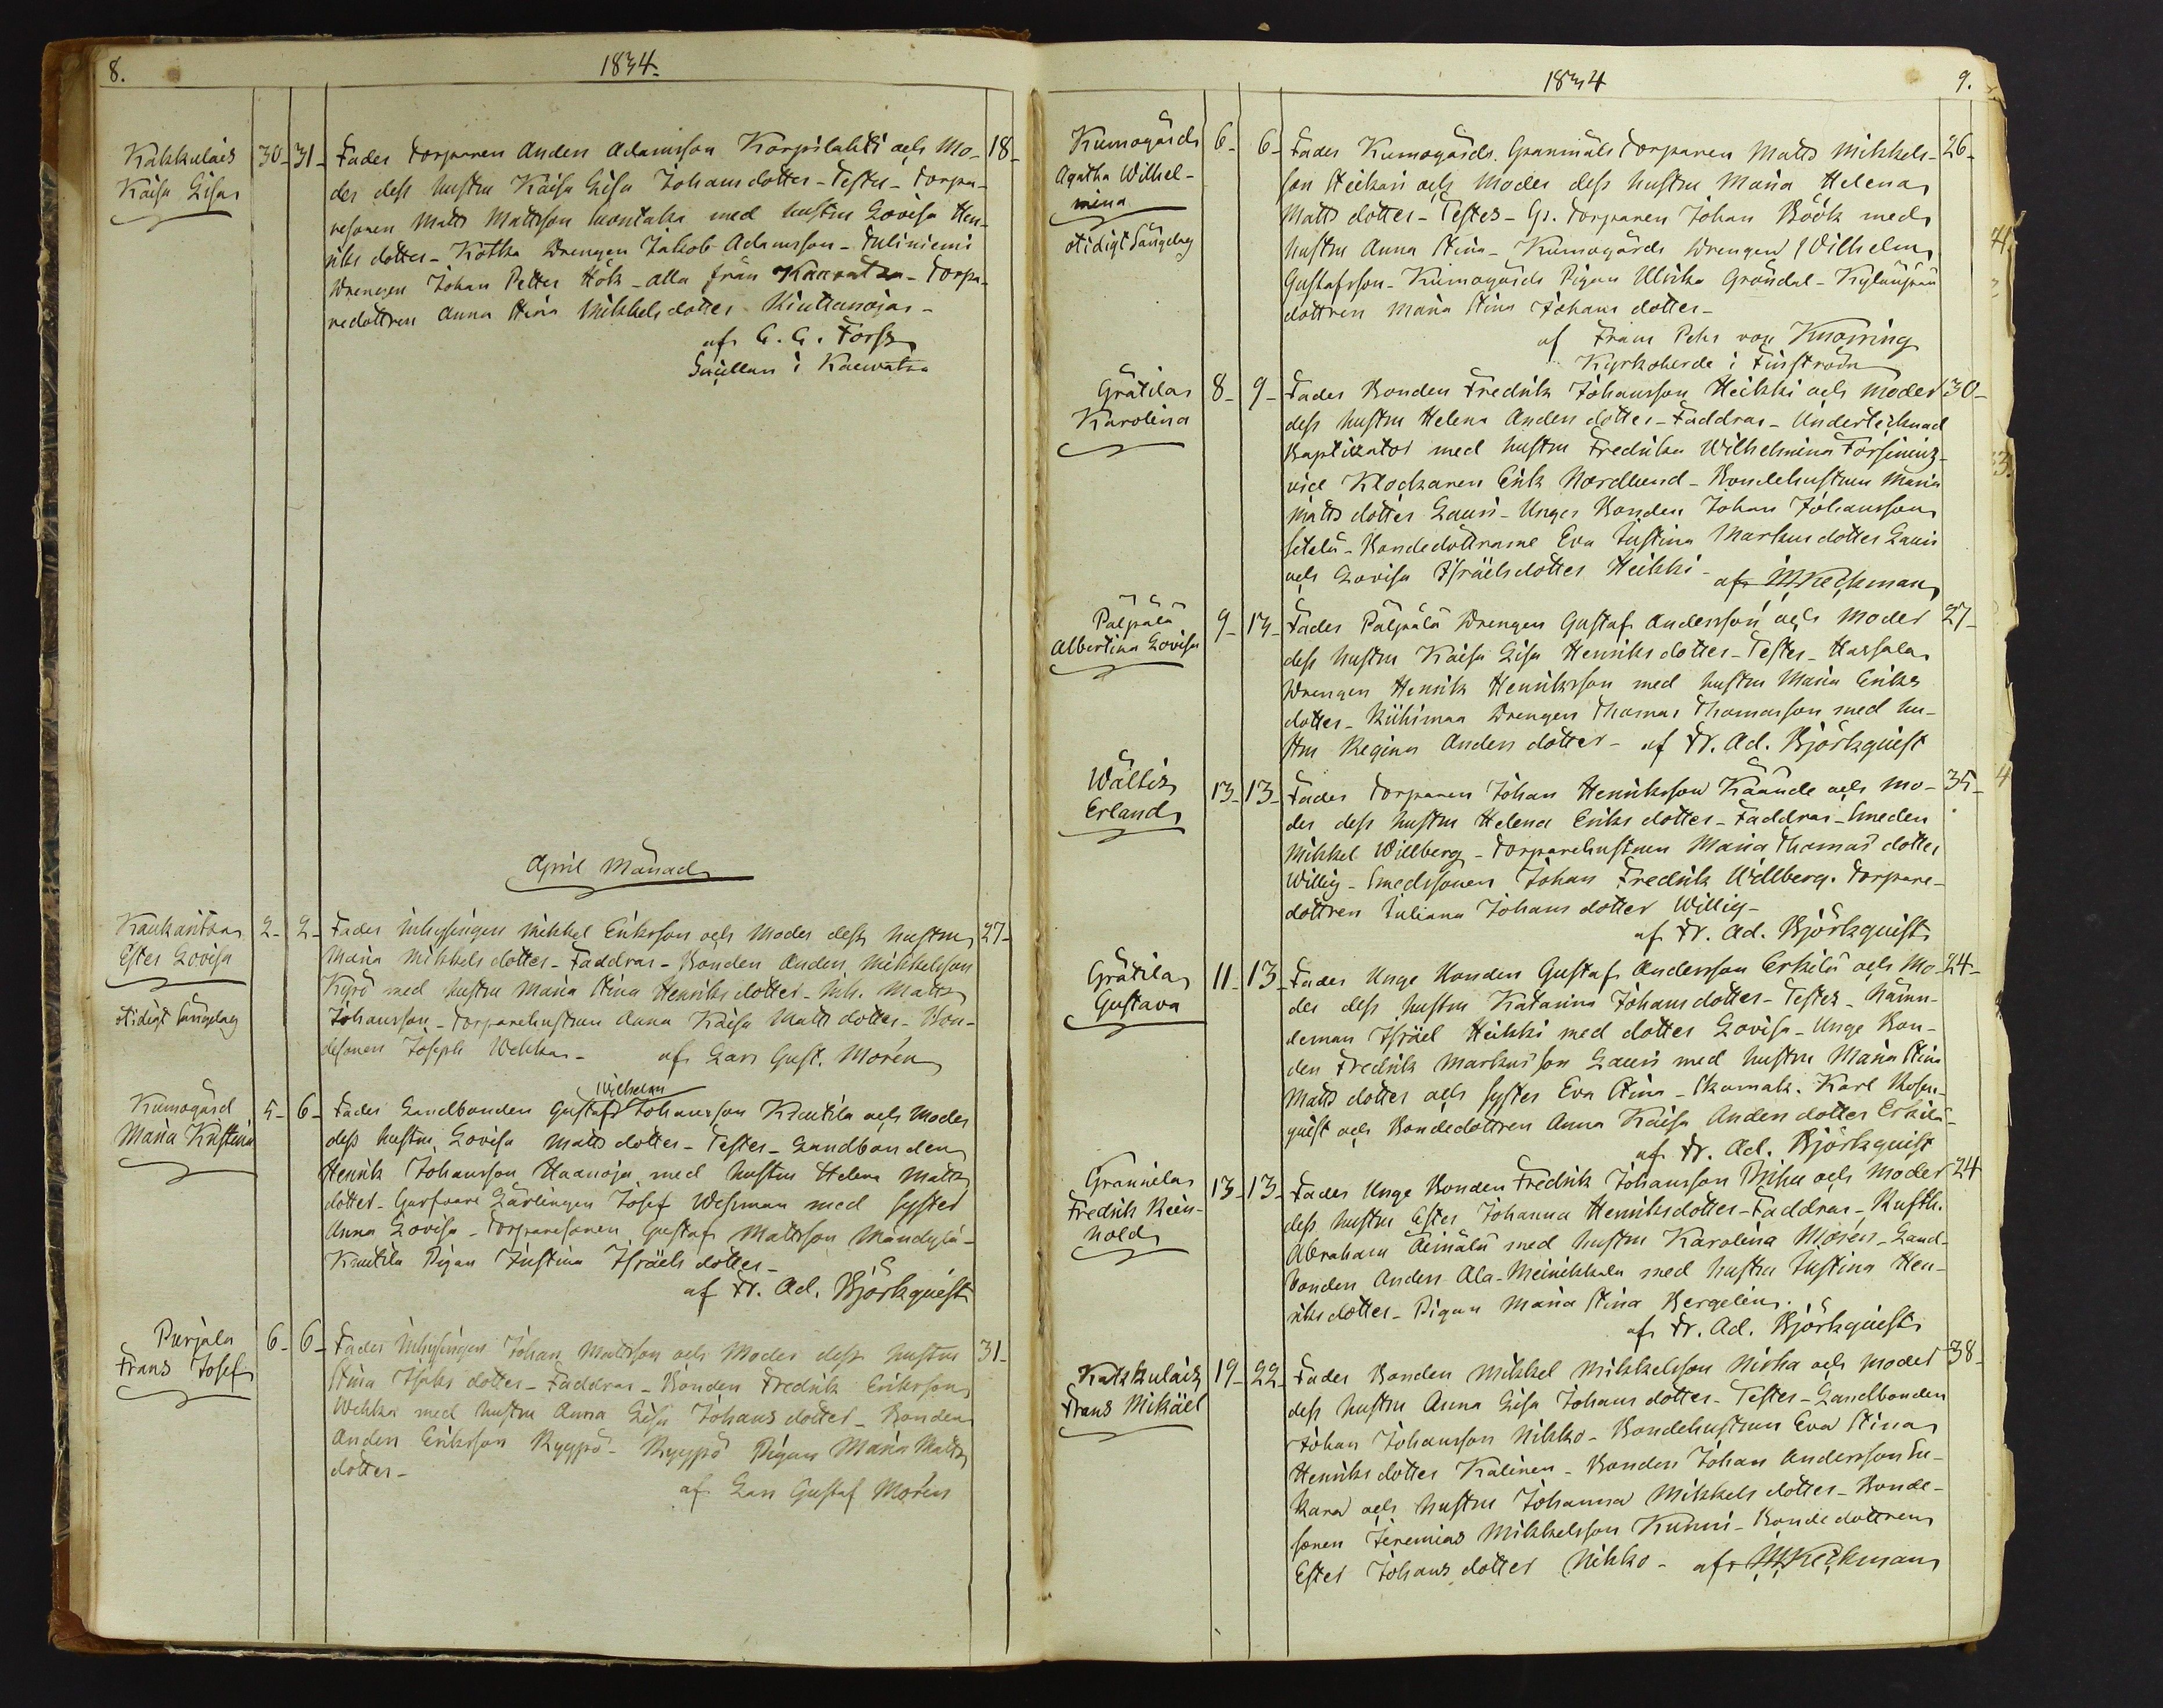 8.
1834.
Kakkulais 30 - 31 - Fader Torparen Anders Adamsson Korpilahti och Mo- 18 -
Kaisa Lisa
der dess hustru Kaisa Lisa Johansdotter - Testes - Torpa-
resonen Matts Mattsson med hustru Lovisa Hen-
riks dotter - Kotka Drengen Jakob Adamsson - Tuliniemi
Drengen Johan Petter Höök - alla från Kauvatsa - Torpa-
redottren Anna Stina Mikkels dotter Kiettanojas -
af G. G. Forss
i Kauvatsa
April Månad
Kaukaritsa 2 - 2 - Fader Inhysingen Mikkel Eriksson och Moder dess hustru 27 -
Ester Lovisa
Maria Mikkels dotter - Faddrar - Bonden Anders Mikkelsson
otidigt Sängelag
Kyrö med hustru Maria Stina Henriks dotter - Inh. Matts
Johansson - Torparehustrun Anna Kaisa Matts dotter - Bon-
desonen Joseph Wehkas - af Lars Gust. Morén
Wilhelm
Kumogård 5 - 6 - Fader Landbonden Gustaf Johansson Krutila och Moder
Maria Kristina
dess hustru Lovisa Matts dotter - Testes - Landbonden
Henrik Johansson Haanoja med hustru Helena Matts
dotter - Garfvare Lärlingen Josef Wesman med syster
Anna Lovisa - Torparesonen Gustaf Mattsson Mändylä -
Krutila Pigan Justina Israels dotter -
af Fr. Ad. Björkquist
Purjala 6 - 6 - Fader Inhysingen Johan Mattsson och Moder dess hustru 31 -
Frans Josef
Stina Isaks dotter - Faddrar - Bonden Fredrik Eriksson
Wehka med hustru Anna Lisa Johans dotter - Bonden
Anders Eriksson Ryyppö - Ryyppö Pigan Maria Matts
dotter -
af Lars Gustaf Morén
1834
9.
Kumogårds 6 - 6 - Fader Kumogårds Torparen Matts Mikkels- 26 -
Agatha Wilhel-
mina
son Heikari och Moder dess hustru Maria Helena
Matts dotter - Testes - Gr. Torparen Johan Böök med
otidigt Sängelag
hustru Anna Stina - Kumogårds Drengen Wilhelm
Gustafsson - Kumogårds Pigan Ulrika Gröndal -
dottren Maria Stina Johans dotter -
af Frans Pehr von Knorring
Kyrkoherde i Finström
Grätilas 8 - 9 - Fader Bonden Fredrik Johansson Heikki och Moder 30 -
Karolina
dess hustru Helena Anders dotter - Faddrar - Undertecknad
Baptizator med hustru Fredrika Wilhelmina
vice Klockaren Erik Nordlund - Bondehustrun Maria
Matts dotter Lauri - Unge Bonden Johan Johansson
Setälä - Bondedöttrarne Eva Justina Markus dotter Lauri
och Lovisa Israels dotter Heikki - af M Keckman
Palpälä 9 - 13 - Fader Palpälä Drengen Gustaf Andersson och Moder 27 -
Albertina Lovisa
dess hustru Kaisa Lisa Henriks dotter - Testes - Hassala
Drengen Henrik Henriksson med hustru Maria Eriks
dotter - Riihimaa Drengen Thomas Thomasson med hu-
stru Regina Anders dotter - af Fr. Ad. Björkquist
Wältis 13 - 13 - Fader Torparen Johan Henriksson Käände och Mo- 35 -
Erland
der dess hustru Helena Eriks dotter - Faddrar - Smeden
Mikkel Willberg - Torparehustrun Maria Thomas dotter
Willig - Smedssonen Johan Fredrik Willberg. Torpare-
dottren Juliana Johans dotter Willig -
af Fr. Ad. Björkquist
Grätila 11 - 13 - Fader Unge Bonden Gustaf Andersson Erkilä och Mo- 24 -
Gustava
der dess hustru Katarina Johans dotter - Testes - Nämn-
deman Israel Heikki med dotter Lovisa - Unge Bon-
den Fredrik Markusson Lauri med hustru Maria Stina
Matts dotter och syster Eva Stina - Skomak. Karl Rosen-
quist och Bondedottren Anna Kaisa Anders dotter Erkilä -
af Fr. Ad. Björkquist
Grannilas 13 - 13 - Fader Unge Bonden Fredrik Johansson Prihu och Moder 24
Fredrik Rein-
hold
dess hustru Ester Johanna Henriksdotter - Faddrar - Rusth.
Abraham Äimälä med hustru Karolina Morén - Land-
bonden Anders Ala-Meinikkala med hustru Justina Hen-
riks dotter - Pigan Maria Stina Bergelin.
af Fr. Ad. Björkquist
Kakkulais 19 - 22 - Fader Bonden Mikkel Mikkelsson Nirha och Moder 38 -
Frans Mikael
dess hustru Anna Lisa Johans dotter - Testes - Landbonden
Johan Johansson Nikko - Bondehustrun Eva Stina
Henriks dotter Kalinen - Bonden Johan Andersson
och hustru Johanna Mikkels dotter - Bonde-
sonen Jeremias Mikkelsson Kunni - Bondedottren
Ester Johans dotter Nikko - af M Keckman